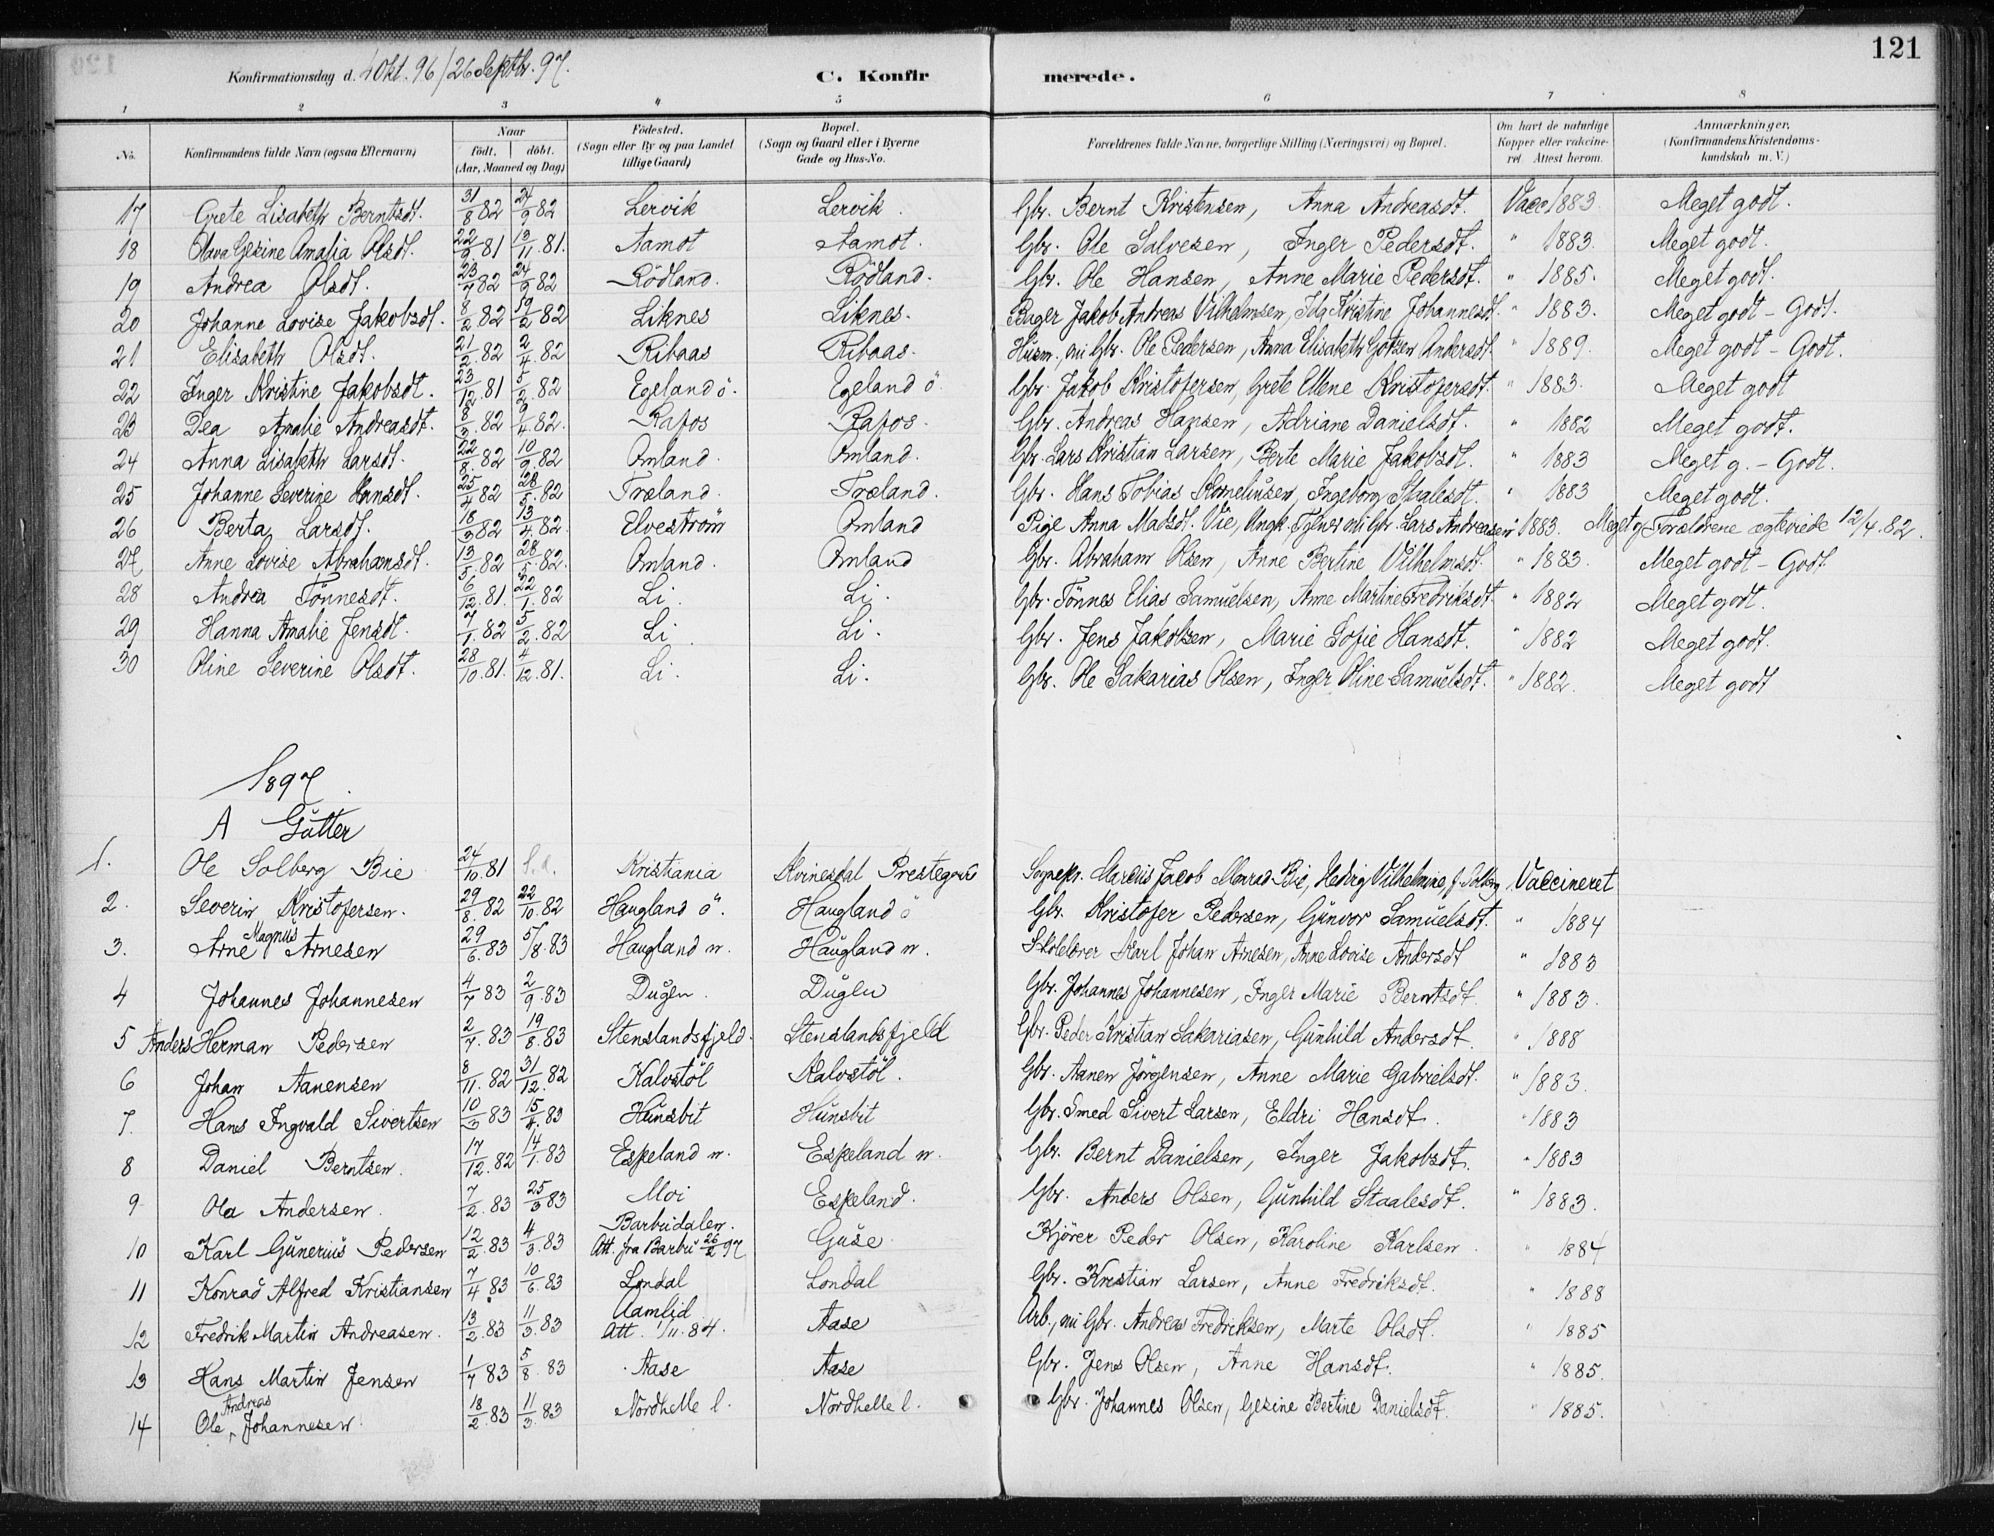 121
Konfirmationsdag d. 4 Okt. 96 / 26 Septbr. 97.
C. Konfirmerede.
1 2 3 4 5 6 7 8
No. Konfirmandens fulde Navn (ogsaa Efternavn) Naar født, døbt. (Aar, Maaned og Dag) Fødested. (Sogn eller By og paa Landet tillige Gaard) Bopæl. (Sogn og Gaard eller i Byerne Gade og Hus-No. Forældrenes fulde Navne, borgerlige Stilling (Næringsvei) og Bopæl. Om havt de naturlige Kopper eller vakcineret. Attest herom. Anmærkninger. (Konfirmandens Kristendomskundskab m. V.)
17 Grete Lisabeth Berntsdt. 31/8 82 24/9 82 Lervik Lervik. Gbr. Bernt Kristensen, Anna Andreasdt. Vacc 1883. Meget godt.
18 Olava Gezine Amalia Olsdt. 22/9 81 13/11 81. Aamot Aamot. Gbr. Ole Salvesen, Inger Pedersdt. " 1883. Meget godt.
19 Andrea Olsdt. 23/7 82 24/9 82 Rödland. Rödland. Gbr. Ole Hansen, Anne Marie Pedersdt. " 1885. Meget godt.
20 Johanne Lovise Jakobsdt. 8/2 82 /2 82 Liknes Liknes. Jakob Andreas Vilhelmsen, Ida Kristine Johannesdt. " 1883. Meget godt - Godt.
21 Elisabeth Olsdt. 21/2 82 2/4 82 Ribaas Ribaas. Husm., nu Gbr. Ole Pedersen, Anna Elisabeth Andersdt. " 1889. Meget godt - Godt.
22 Inger Kristine Jakobsdt. 23/12 81 5/2 82 Egeland ö. Egeland ö. Gbr. Jakob Kristofersen, Grete Ellene Kristofersdt. " 1883. Meget godt
23 Dea Amalie Andreasdt. 8/3 82 9/4 82. Rafos Rafos. Gbr. Andreas Hansen, Adriane Danielsdt. " 1882 Meget godt.
24 Anna Lisabeth Larsdt. 22/8. 82 10/9 82 Omland. Omland. Gbr. Lars Kristian Larsen, Berte Marie Jakobsdt. " 1883 Meget g. - Godt.
25 Johanne Severine Hansdt. 25/4 82 28/5. 82 Træland. Træland. Gbr. Hans Tobias Korneliusen, Ingeborg Staalesdt. " 1883 Meget godt.
26 Berta Larsdt. 18/3 82 13/4 82. Elveström Omland Pige Anna Madsdt. Vie, Ungk. nu Gbr. Lars Andreasen " 1883. Meget g Forældrene ægteviede 12/4. 82.
27 Anne Lovise Abrahamsdt. 13/5 82 28/5 82. Omland. Omland Gbr. Abraham Olsen, Anne Bertine Vilhelmsdt. " 1883. Meget godt - Godt.
28 Andrea Tönnesdt. 6/12. 81. 22/1. 82 Li. Li. Gbr. Tönnes Elias Samuelsen, Anne Martine Fredriksdt. " 1882 Meget godt.
29 Hanna Amalie Jensdt. 7/1. 82 5/2. 82 Li. Li. Gbr. Jens Jakobsen, Marie Sofie Hansdt. " 1882 Meget godt.
30 Oline Severine Olsdt. 28/10. 81. 4/12. 81. Li. Li. Gbr. Ole Sakarias Olsen, Inger Oline Samuelsdt. " 1882. Meget godt
1897.
A Gutter
1. Ole Solberg Bie 24/10. 81 S.d. Kristiania Kvinesdal Prestegaard Sognepr. Marcus Jacob Monrad Bie, Hedvig Vilhelmine f. Solberg Vaccineret
2. Severin Kristofersen. 29/8. 82 22/10. 82 Haugland ö. Haugland ö Gbr. Kristofer Pedersen, Gunvor Samuelsdt. " 1884
3. Arne Magnus Arnesen 29/6. 83 5/8. 83 Haugland n. Haugland n. Skolelærer Karl Johan Arnesen, Anne Lovise Andersdt " 1883
4 Johannes Johannesen 4/7 83 2/9. 83 Dugen. Dugen Gbr. Johannes Johannesen, Inger Marie Berntsdt. " 1883.
5 Anders Herman Pedersen 2/7. 83 19/8. 83 Stenslandsfjeld. Stenslandsfjeld Gbr. Peder Kristian Sakariasen, Gunhild Andersdt. " 1888
6 Johan Aanensen 8/11. 82 31/12. 82 Kalvstöl Kalvstöl. Gbr. Aanen Jörgensen, Anne Marie Gabrielsdt. " 1883.
7. Hans Ingvald Sivertsen 10/3 83 15/4. 83 Hunsbit Hunsbit Gbr. Smed Sivert Larsen, Eldri Hansdt. " 1883
8 Daniel Berntsen. 17/12. 82 14/1. 83 Espeland n. Espeland n. Gbr. Bernt Danielsen, Inger Jakobsdt. " 1883
9 Ola Andersen. 7/2. 83 25/3 83 Moi Espeland. Gbr. Anders Olsen, Gunhild Staalesdt. " 1883.
10 Karl Gunerius Pedersen 12/2. 83 4/3. 83 Barbudalen. Att. fra Barbu 26/2 97 Guse Kjörer Peder Olsen, Karoline Karlsen. " 1884
11 Konrad Alfred Kristiansen 7/4. 83 10/6. 83 Londal Londal Gbr. Kristian Larsen, Anne Fredriksdt. " 1888
12 Fredrik Martin Andreasen. 13/2. 83 11/3. 83 Aamlid Att. 1/11. 84. Aase Arb., nu Gbr. Andreas Fredriksen, Marte Olsdt. " 1885
13 Hans Martin Jensen 1/7 83 5/8. 83 Aase Aase Gbr. Jens Olsen, Anne Hansdt. " 1885.
14 Ole Andreas Johannesen. 18/2. 83 11/3. 83 Nordhelle l. Nordhelle l. Gbr. Johannes Olsen, Gezine Bertine Danielsdt. " 1885.